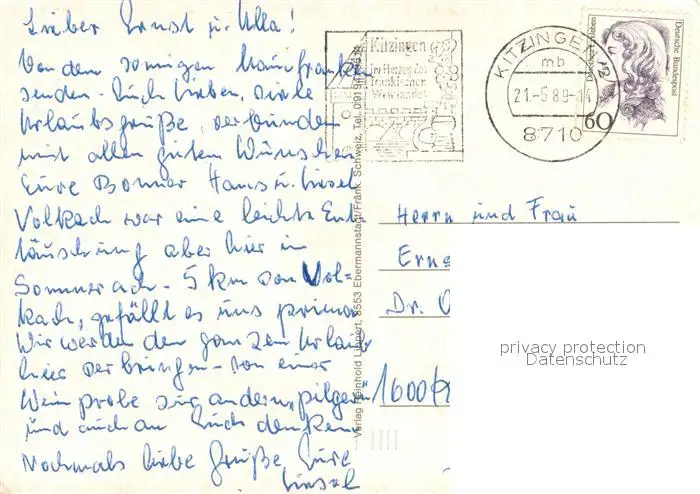 Lieber Ernst u. Ulla!
Von dem sonnigen Mainfranken
senden Euch Lieben, viele
Urlaubsgrüße, verbunden
mit allen guten Wünschen
Eure Bonner Hans u. Liesel
Volkach war eine leichte Ent
täuschung aber hier in
Sommerach - 5 km von Vol=
kach, gefällt es uns prima
Wir werden den ganzen Urlaub
hier verbringen - von einer
Weinprobe zur andern „pilgern"
und auch an Euch denken
Nochmals liebe Grüße Eure
Liesel
Verlag Reinhold Lippert, 8553 Ebermannstadt/Fränk. Schweiz, Tel. 09191
Kitzingen
im Herzen des
fränkischen
Weinlandes
KITZINGEN
mb
21.-5.89-14
8710
60
Deutsche Bundespost
Herrn und Frau
Erns
Dr. O
1600
privacy protection
Datenschutz